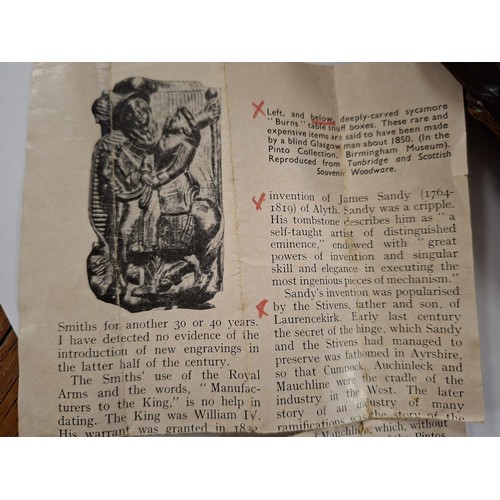 Left, and below, deeply-carved sycamore
"Burns" table snuff boxes. These rare and
expensive items are said to have been made
by a blind Glasgow man about 1850. (In the
Pinto Collection, Birmingham Museum).
Reproduced from Tunbridge and Scottish
Souvenir Woodware.
Smiths for another 30 or 40 years.
I have detected no evidence of the
introduction of new engravings in
the latter half of the century.
The Smiths' use of the Royal
Arms and the words, "Manufac-
turers to the King," is no help in
dating. The King was William IV.
His warrant was granted in 1832
invention of James Sandy (1764-
1819) of Alyth. Sandy was a cripple.
His tombstone describes him as "a
self-taught artist of distinguished
eminence," endowed with "great
powers of invention and singular
skill and elegance in executing the
most ingenious pieces of mechanism."
Sandy's invention was popularised
by the Stivens, father and son, of
Laurencekirk. Early last century
the secret of the hinge, which Sandy
and the Stivens had managed to
preserve was fathomed in Ayrshire,
so that Cumnock, Auchinleck and
Mauchline were the cradle of the
industry in the West. The later
story of an industry of many
ramifications was the story of the
of Mauchline, which, without
of the Pintos